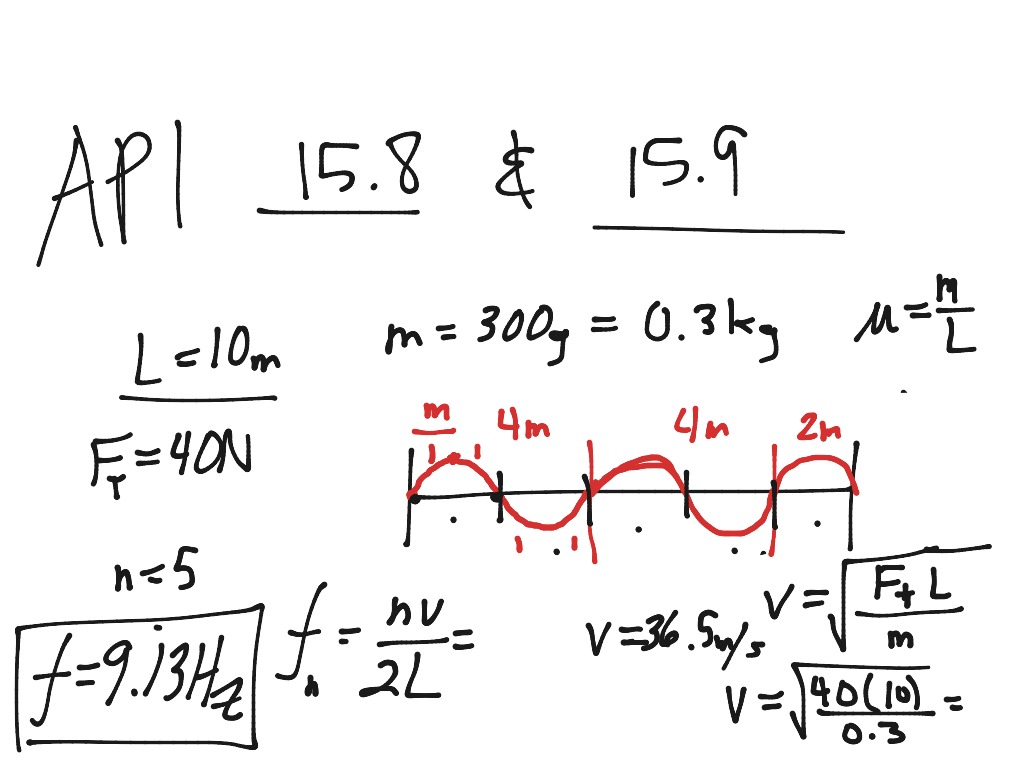 AP1 15.8 & 15.9
L = 10m
m = 300g = 0.3kg
μ = m/L
F_T = 40N
m 4m 4m 2m
n = 5
f = 9.13Hz
f_n = nv/2L =
v = 36.5m/s
v = √(F_T L/m)
v = √(40(10)/0.3) =